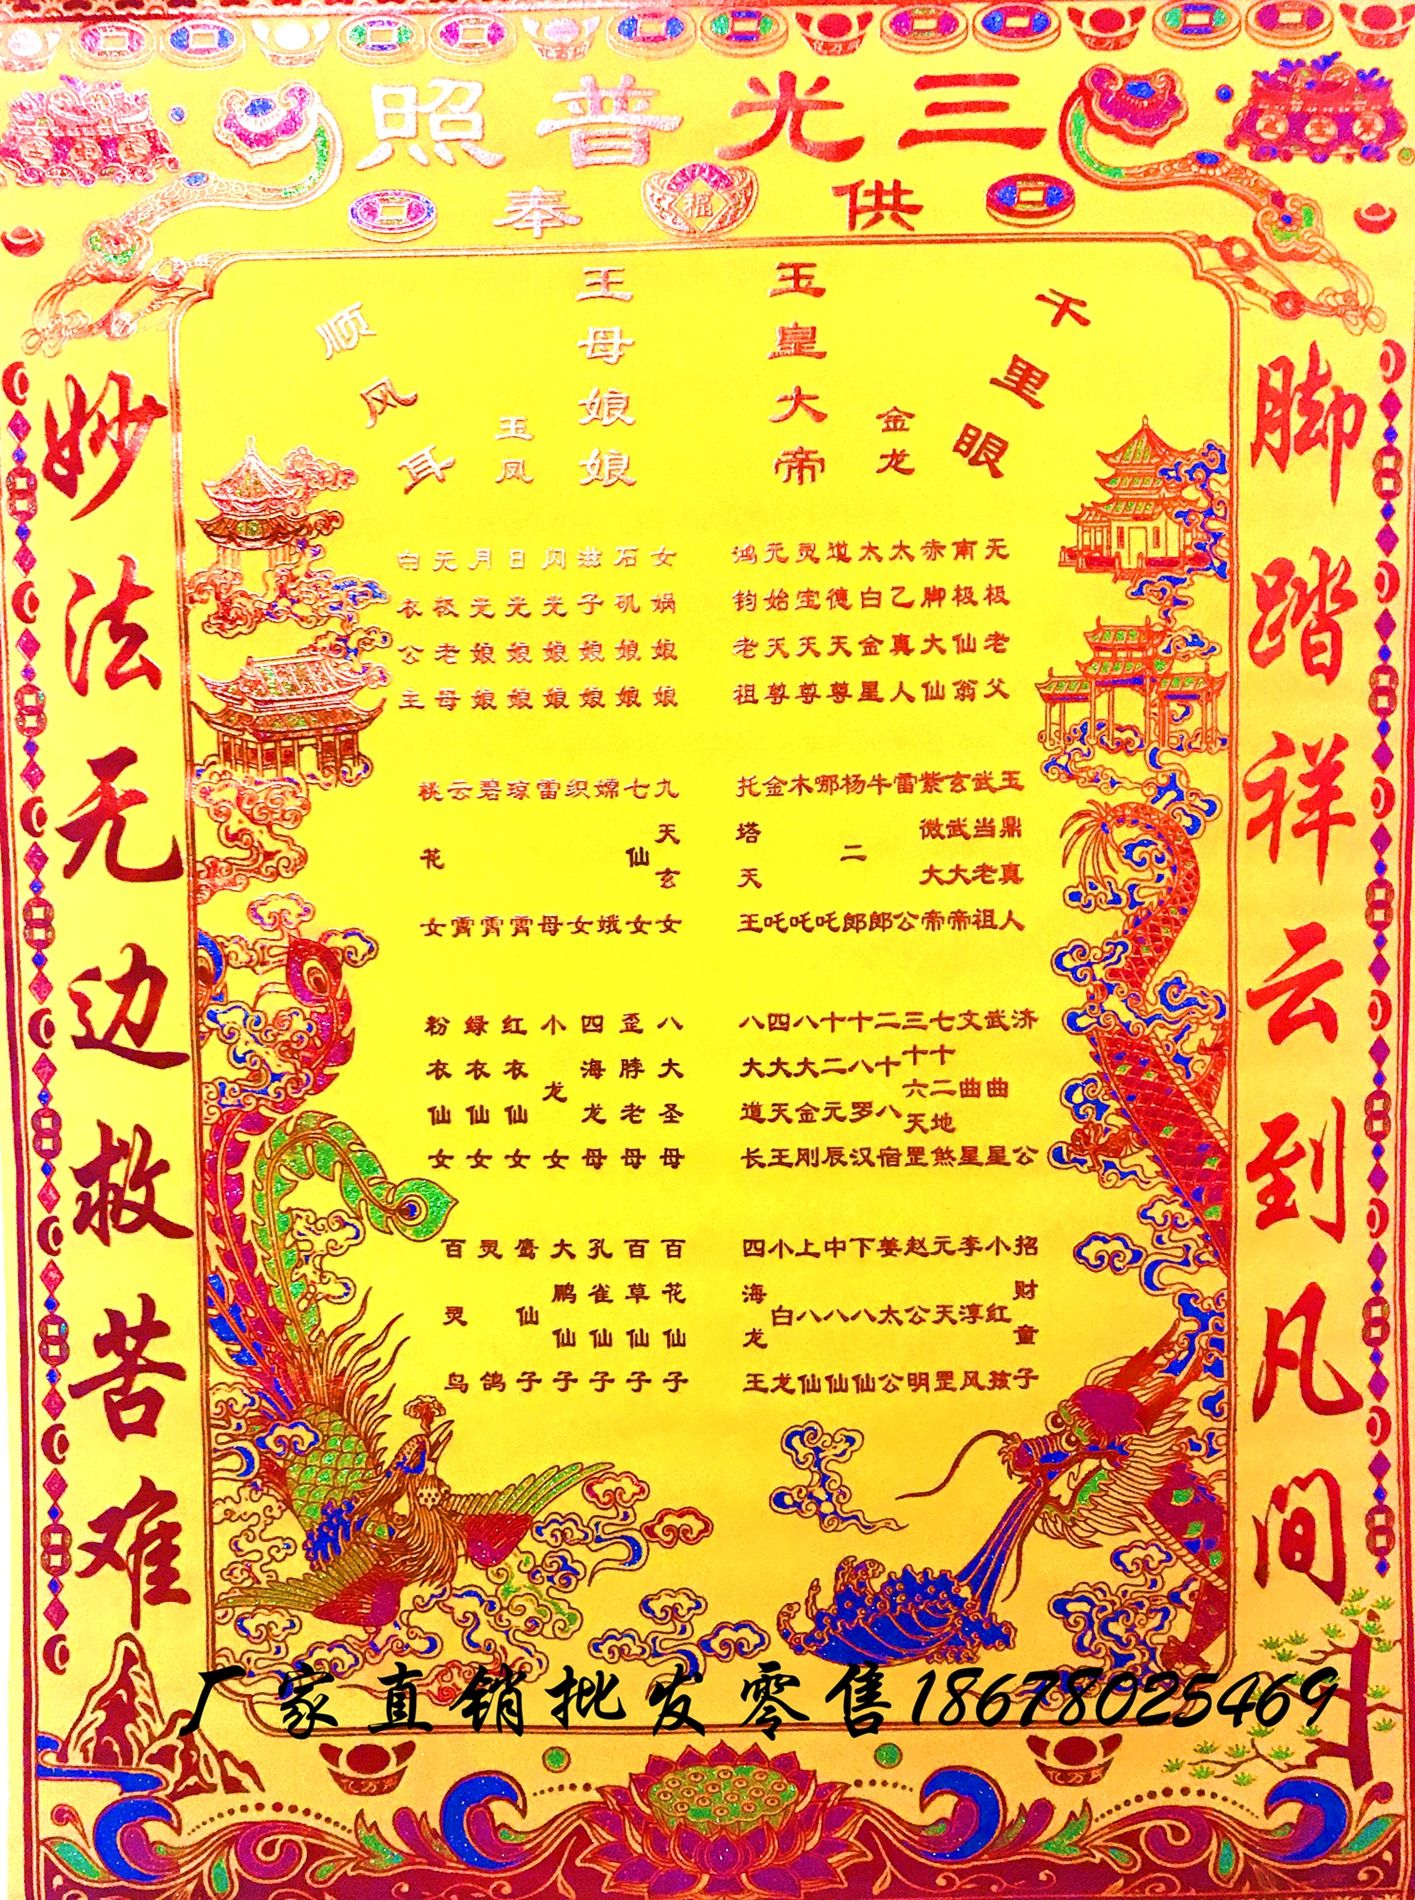 三光普照
供奉
脚踏祥云到凡间
千里眼
金龙
玉皇大帝
王母娘娘
玉凤
顺风耳
无极老父
南极仙翁
赤脚大仙
太乙真人
太白金星
道德天尊
灵宝天尊
元始天尊
鸿钧老祖
女娲娘娘
石矶娘娘
滋子娘娘
闪光娘娘
日光娘娘
月光娘娘
无极老母
白衣公主
玉鼎真人
武当老祖
玄武大帝
紫微大帝
雷公
牛郎
杨二郎
哪吒
木吒
金吒
托塔天王
九天玄女
七仙女
嫦娥
织女
雷母
琼霄
碧霄
云霄
桃花女
济公
武曲星
文曲星
七十二地煞
三十六天罡
二十八宿
十八罗汉
十二元辰
八大金刚
四大天王
八大道长
八大圣母
歪脖老母
四海龙母
小龙女
红衣仙女
绿衣仙女
粉衣仙女
招财童子
小红孩
李淳风
元天罡
赵公明
姜太公
下八仙
中八仙
上八仙
小白龙
四海龙王
百花仙子
百草仙子
孔雀仙子
大鹏仙子
鹰仙子
灵鸽
百灵鸟
妙法无边救苦难
厂家直销批发零售18678025469